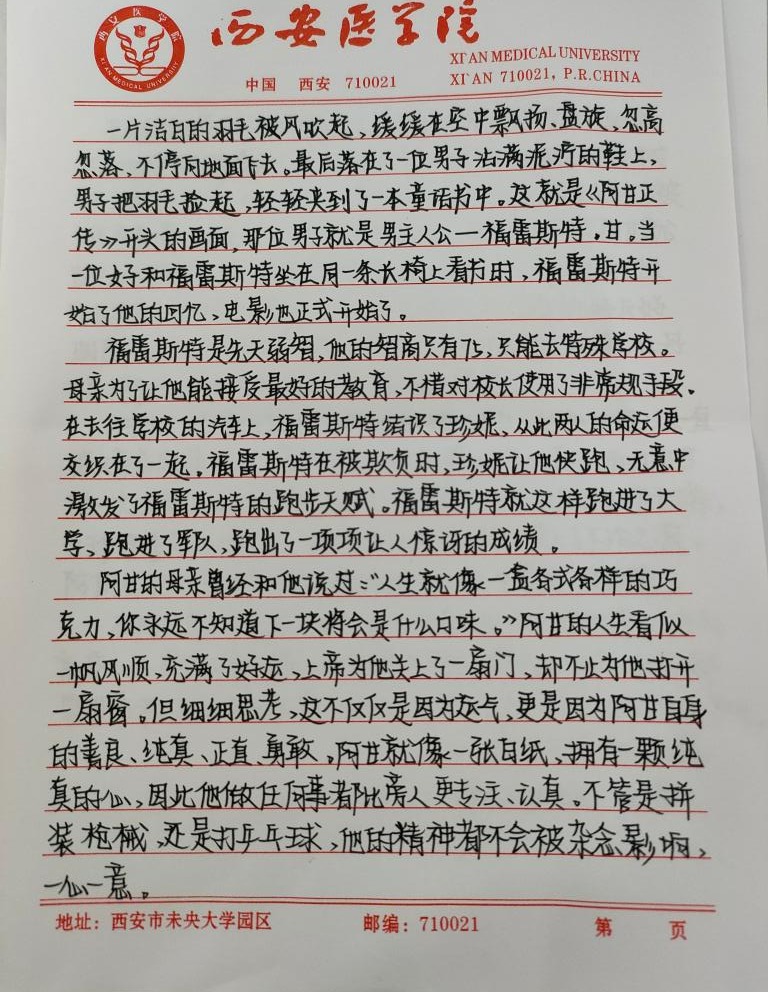 西安医学院
XI'AN MEDICAL UNIVERSITY
中国 西安 710021
XI'AN 710021, P.R.CHINA
西安医学院
XI'AN MEDICAL UNIVERSITY
一片洁白的羽毛被风吹起，缓缓在空中飘扬、盘旋、忽高
忽落，不停向地面飞去。最后落在了一位男子沾满泥泞的鞋上，
男子把羽毛捡起，轻轻夹到了一本童话书中。这就是《阿甘正
传》开头的画面，那位男子就是男主人公—福雷斯特.甘。当
一位女子和福雷斯特坐在同一条长椅上看书时，福雷斯特开
始了他的回忆，电影也正式开始了。
福雷斯特是先天弱智，他的智商只有75，只能去特殊学校。
母亲为了让他能接受最好的教育，不惜对校长使用了非常规手段。
在去往学校的汽车上，福雷斯特结识了珍妮，从此两人的命运便
交织在了一起。福雷斯特在被欺负时，珍妮让他快跑，无意中
激发了福雷斯特的跑步天赋。福雷斯特就这样跑进了大
学，跑进了军队，跑出了一项项让人惊讶的成绩。
阿甘的母亲曾经和他说过：“人生就像一盒各式各样的巧
克力，你永远不知道下一块将会是什么口味。”阿甘的人生看似
一帆风顺，充满了好运，上帝为他关上了一扇门，却不止为他打开
一扇窗。但细细思考，这不仅仅是因为运气，更是因为阿甘自身
的善良、纯真、正直、勇敢。阿甘就像一张白纸，拥有一颗纯
真的心，因此他做任何事都比旁人更专注、认真。不管是拼
装枪械，还是打乒乓球，他的精神都不会被杂念影响，
一心一意。
地址：西安市未央大学园区 邮编：710021 第 页